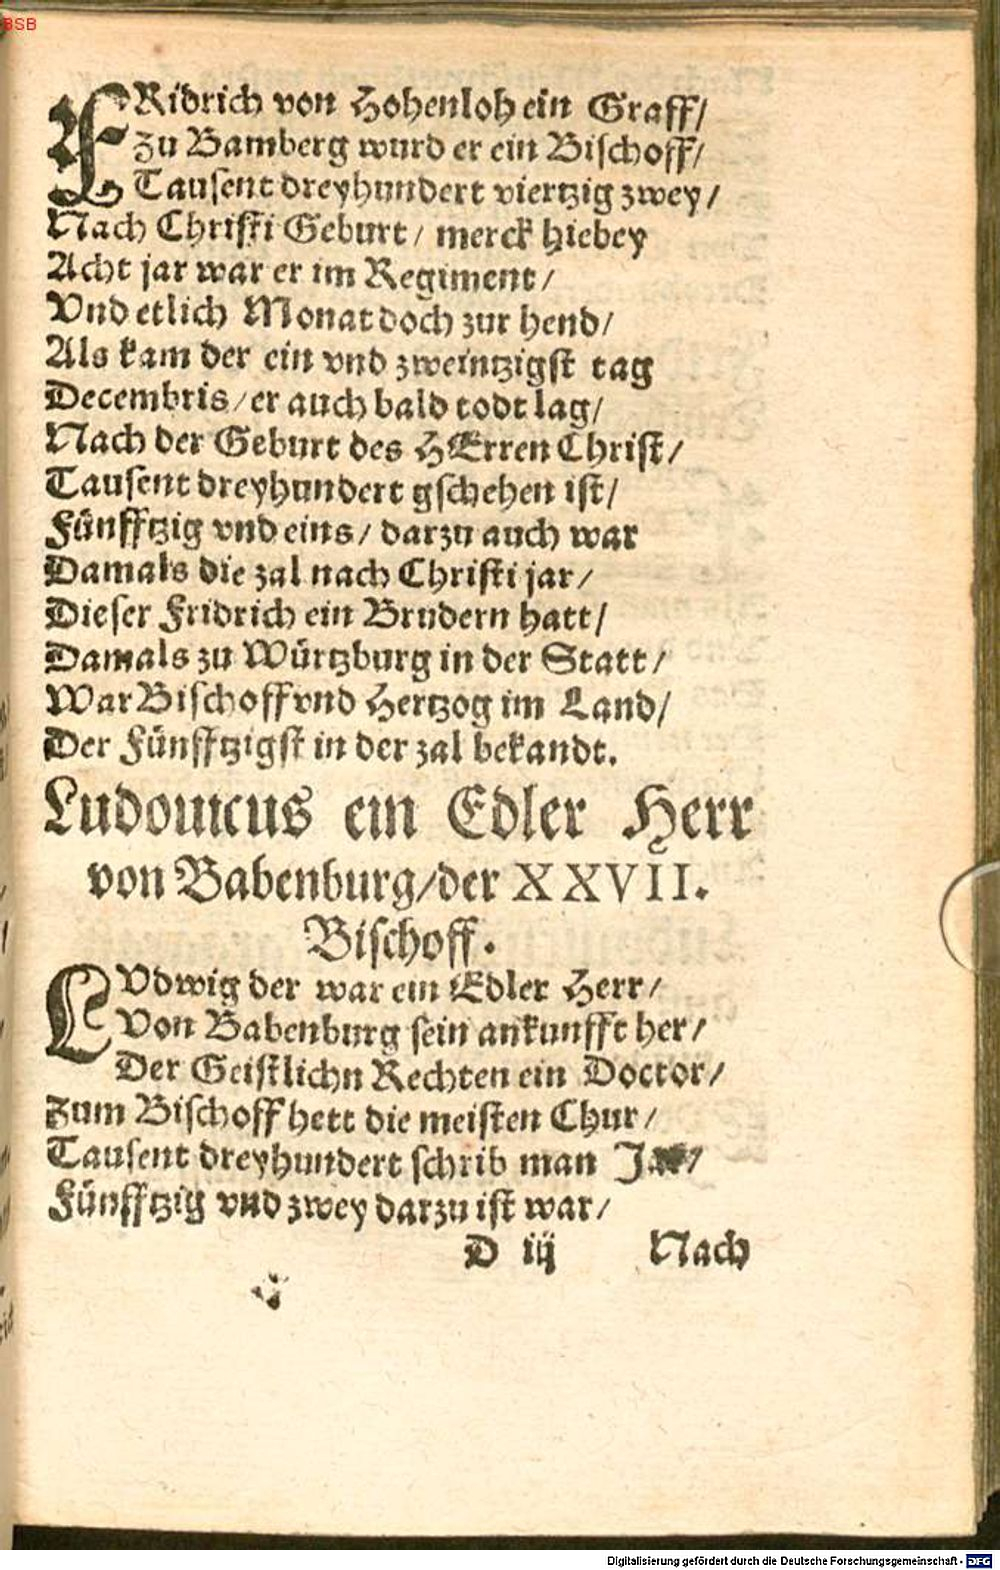 BSB
FRidrich von Hohenloh ein Graff/
Zu Bamberg wurd er ein Bischoff/
Tausent dreyhundert viertzig zwey/
Nach Christi Geburt / merck hiebey
Acht jar war er im Regiment /
Vnd etlich Monat doch zur hend/
Als kam der ein vnd zweintzigst tag
Decembris / er auch bald todt lag/
Nach der Geburt des HErren Christ/
Tausent dreyhundert gschehen ist/
Fünfftzig vnd eins / darzu auch war
Damals die zal nach Christi jar /
Dieser Fridrich ein Brudern hatt/
Damals zu Würtzburg in der Statt /
War Bischoff vnd Hertzog im Land/
Der Fünfftzigst in der zal bekandt.
Ludouicus ein Edler Herr
von Babenburg/der XXVII.
Bischoff.
LVdwig der war ein Edler Herr /
Von Babenburg sein ankunfft her /
Der Geistlichn Rechten ein Doctor /
Zum Bischoff hett die meisten Chur /
Tausent dreyhundert schrib man Jar /
Fünfftzig vnd zwey darzu ist war /
D iij Nach
Digitalisierung gefördert durch die Deutsche Forschungsgemeinschaft - DFG